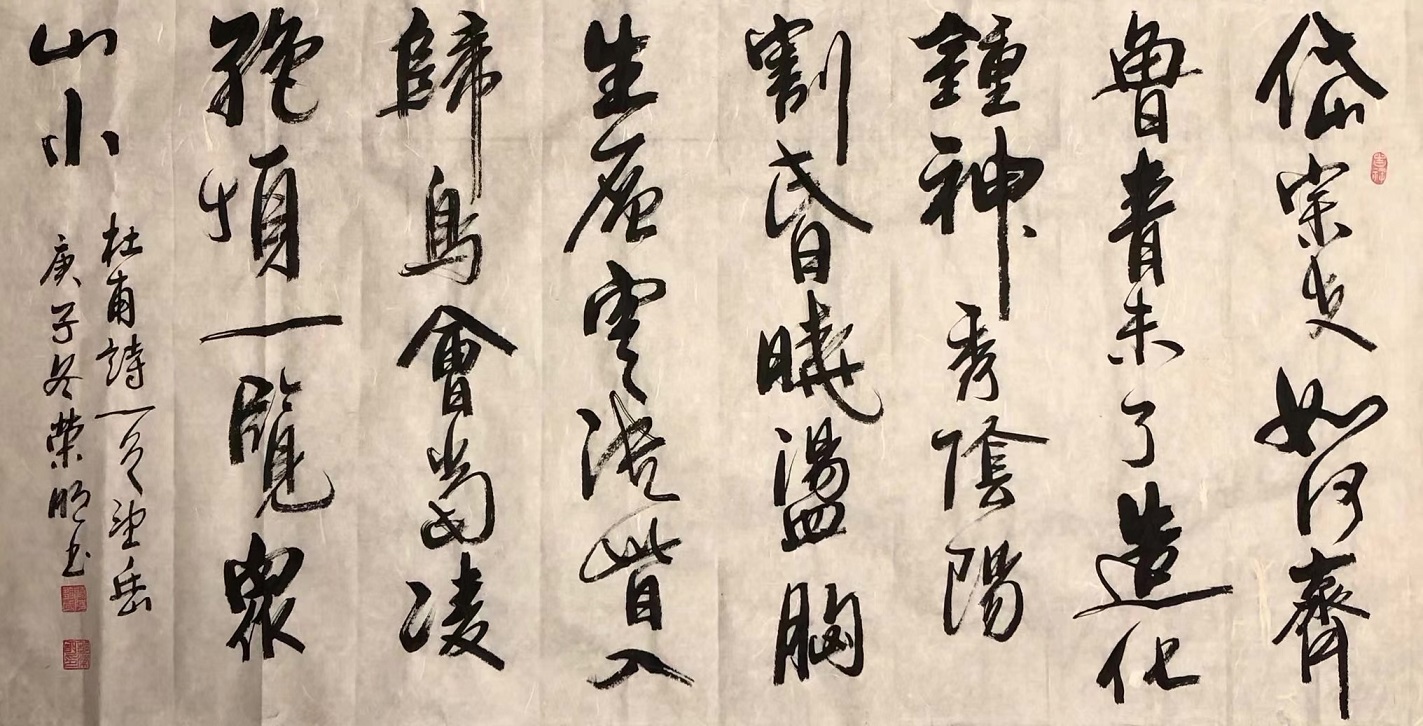 岱宗夫如何齊
魯青未了造化
鍾神秀陰陽
割昏曉盪胸
生層雲決眥入
歸鳥會當凌
絕頂一覽眾
山小
杜甫詩一首望岳
庚子冬榮明书